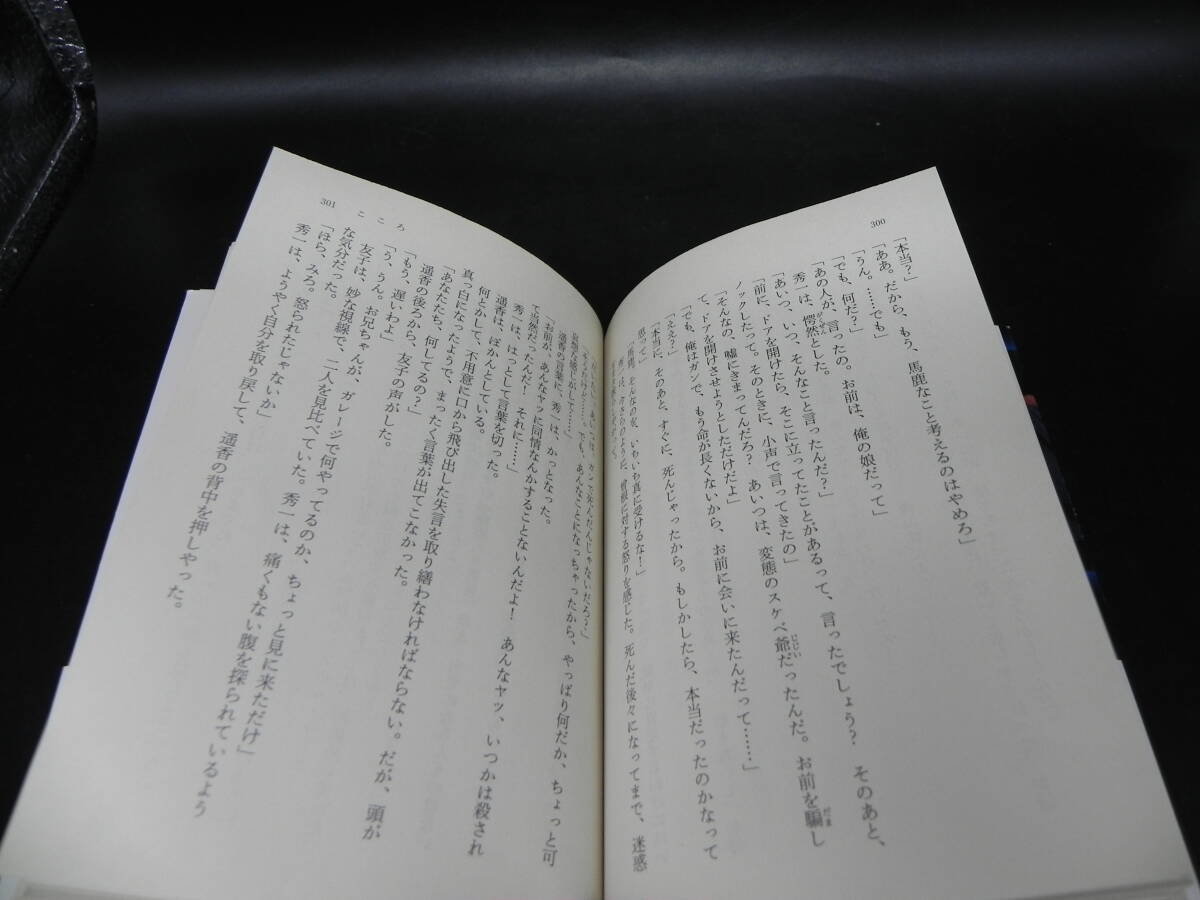 300
「本当？」
「ああ。だから、もう、馬鹿なこと考えるのはやめろ」
「うん。……でも」
「でも、何だ？」
「あの人が、言ったの。お前は、俺の娘だって」
秀一は、愕然とした。
「あいつ、いつ、そんなこと言ったんだ？」
「前に、ドアを開けたら、そこに立ってたことがあるって、言ったでしょう？　そのあと、
ノックしたって。そのときに、小声で言ってきたの」
「そんなの、嘘にきまってんだろ？　あいつは、変態のスケベ爺だったんだ。お前を騙し
て、ドアを開けさせようとしただけだよ」
「でも、俺はガンで、もう命が長くないから、お前に会いに来たんだって……」
「ええ？」
「本当に、そのあと、すぐに、死んじゃったから。もしかしたら、本当だったのかなって
思って」
「馬鹿。そんなの、いちいち真に受けるな！」
秀一は、今さらのように、曾根に対する怒りを感じた。死んだ後々になってまで、迷惑
301
こころ
「そうだけど……。でも、あんなことになっちゃったから、やっぱり何だか、ちょっと可
哀想な感じがして……」
遥香の言葉に、秀一は、かっとなった。
「お前が、あんなヤツに同情なんかすることないんだよ！　あんなヤツ、いつかは殺され
て当然だったんだ！　それに……」
秀一は、はっとして言葉を切った。
遥香は、ぽかんとしている。
何とかして、不用意に口から飛び出した失言を取り繕わなければならない。だが、頭が
真っ白になったようで、まったく言葉が出てこなかった。
「あなたたち、何してるの？」
遥香の後ろから、友子の声がした。
「もう、遅いわよ」
「う、うん。お兄ちゃんが、ガレージで何やってるのか、ちょっと見に来ただけ」
友子は、妙な視線で、二人を見比べていた。秀一は、痛くもない腹を探られているよう
な気分だった。
「ほら、みろ。怒られたじゃないか」
秀一は、ようやく自分を取り戻して、遥香の背中を押しやった。